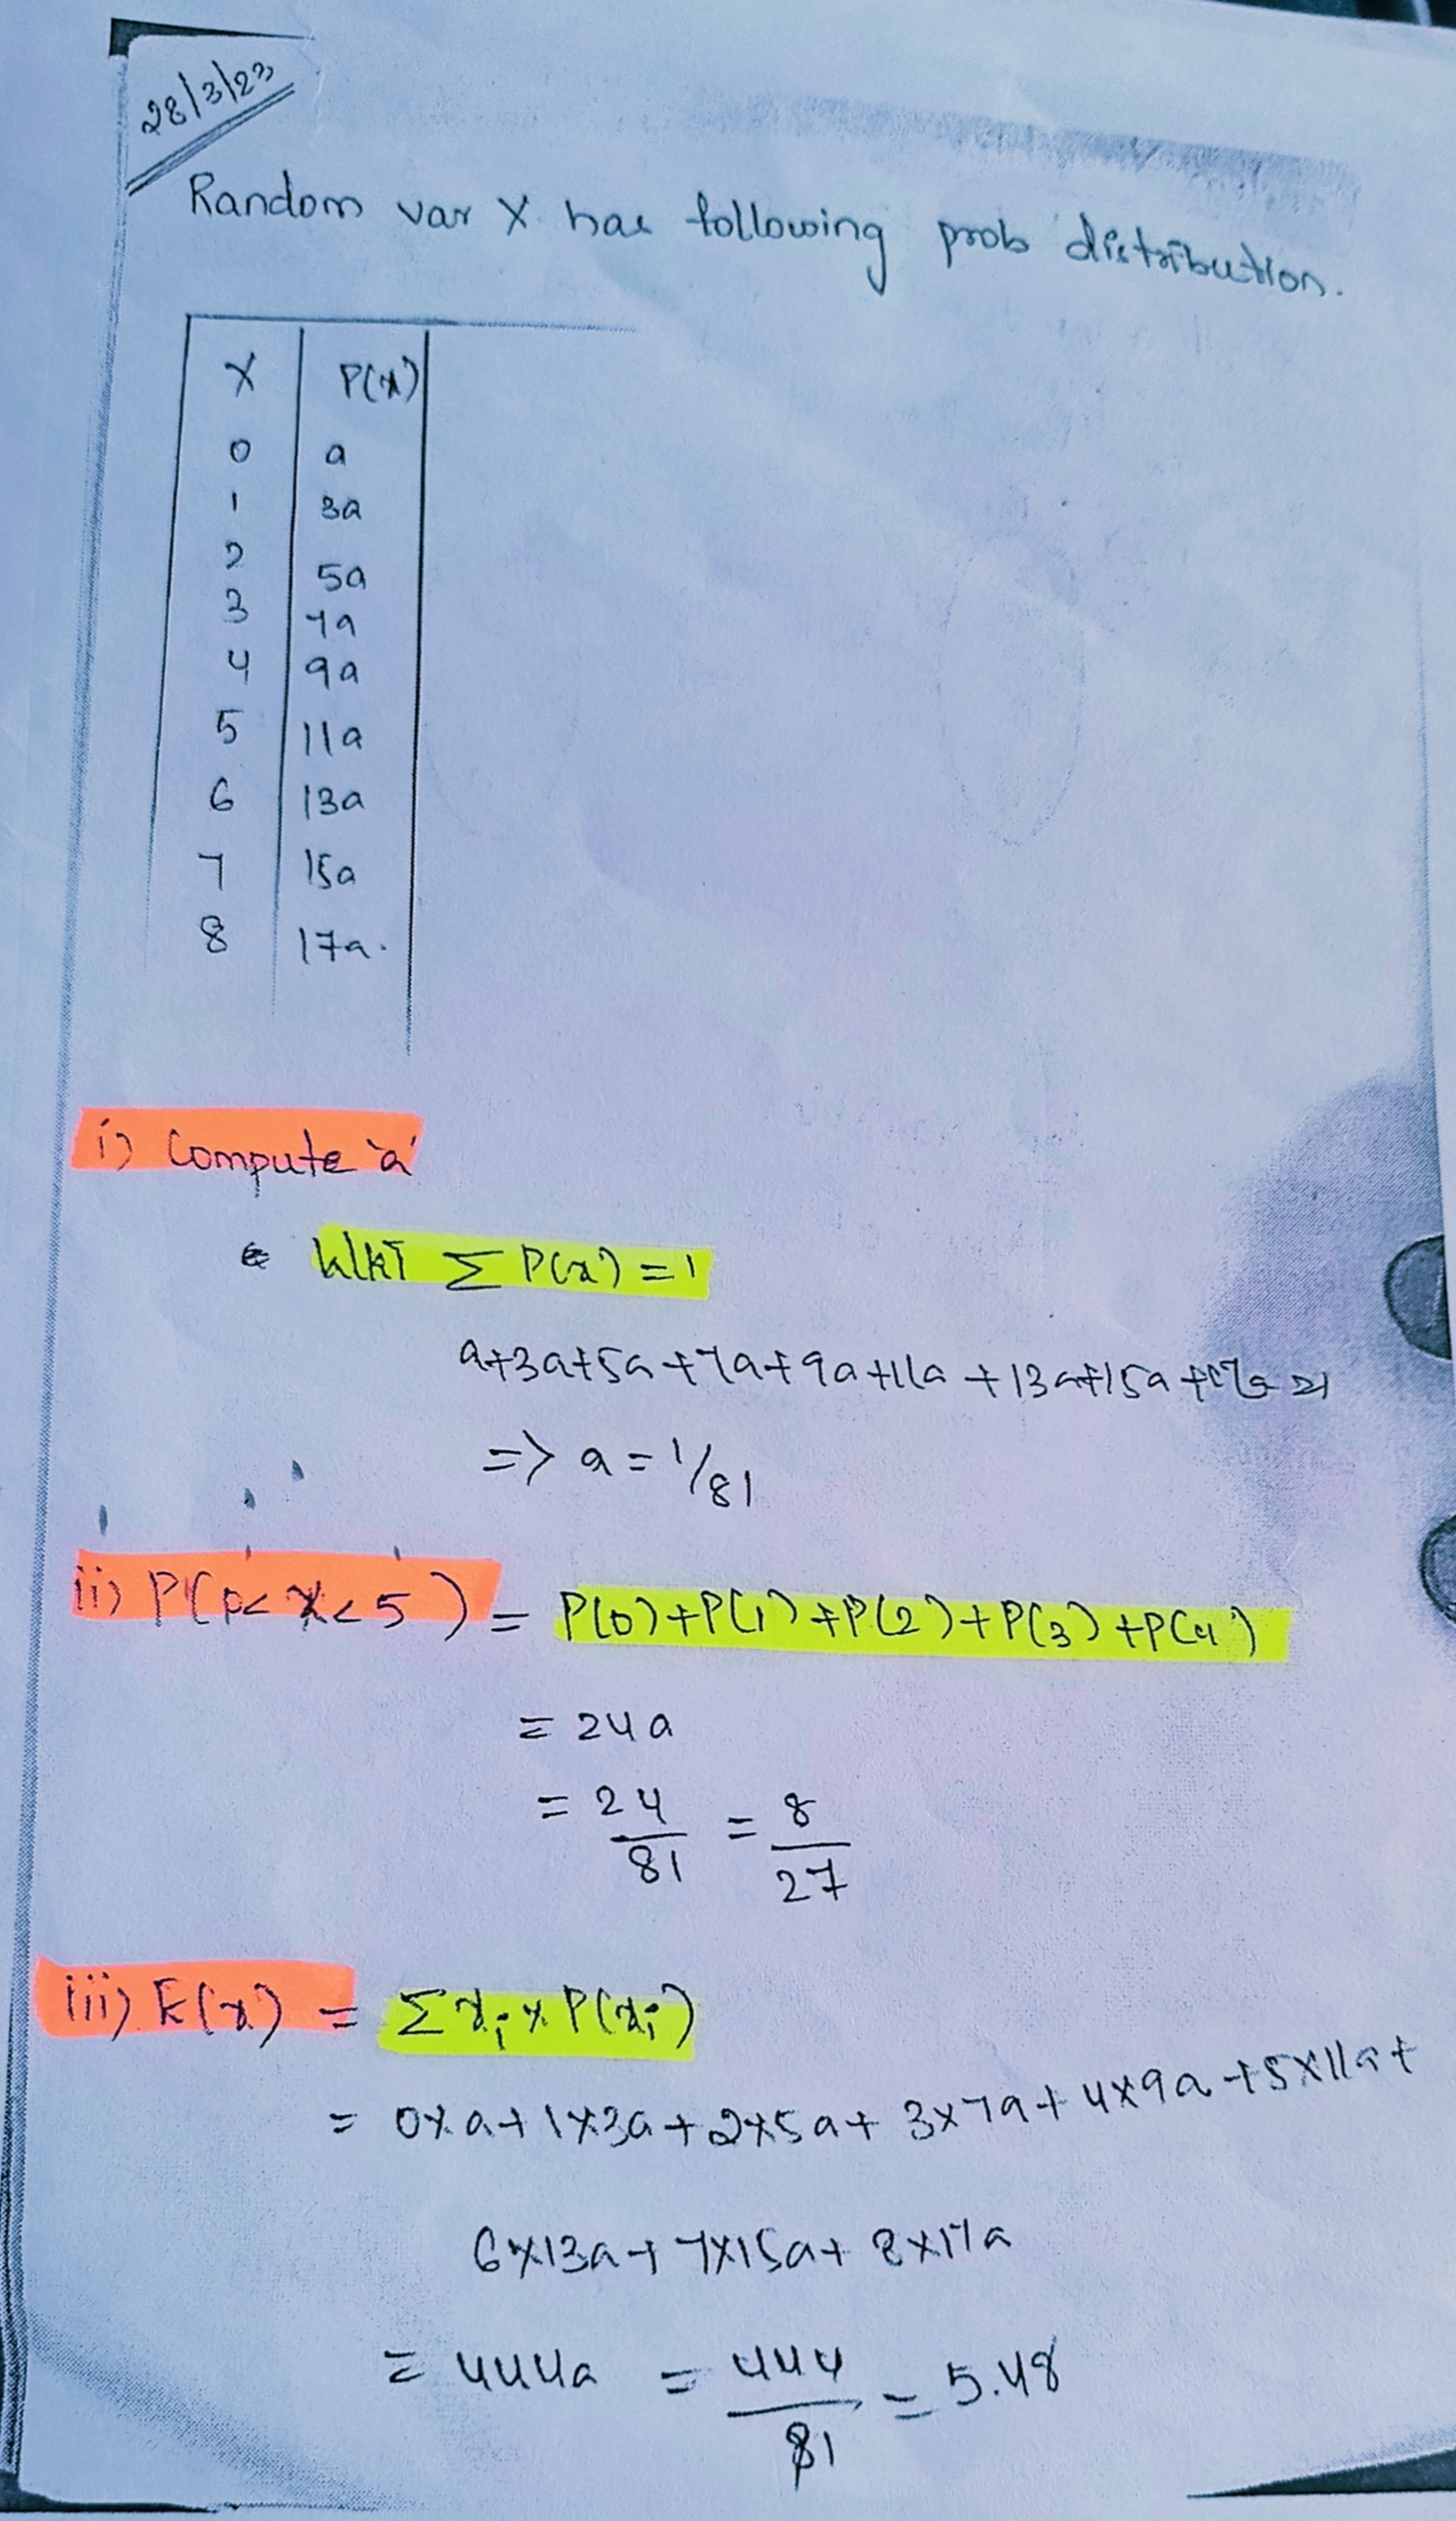 28/3/23
Random var X has following prob distribution.
X P(x)
0 a
1 3a
2 5a
3 7a
4 9a
5 11a
6 13a
7 15a
8 17a.
i) Compute 'a'
WKT Σ P(x) = 1
a+3a+5a+7a+9a+11a+13a+15a+17a=1
=> a = 1/81
ii) P(0<x<5) = P(0)+P(1)+P(2)+P(3)+P(4)
= 24a
= 24/81 = 8/27
iii) E(x) = Σxi x P(xi)
= 0xa+1x3a+2x5a+3x7a+4x9a+5x11a+
6x13a+7x15a+8x17a
= 444a = 444/81 = 5.48